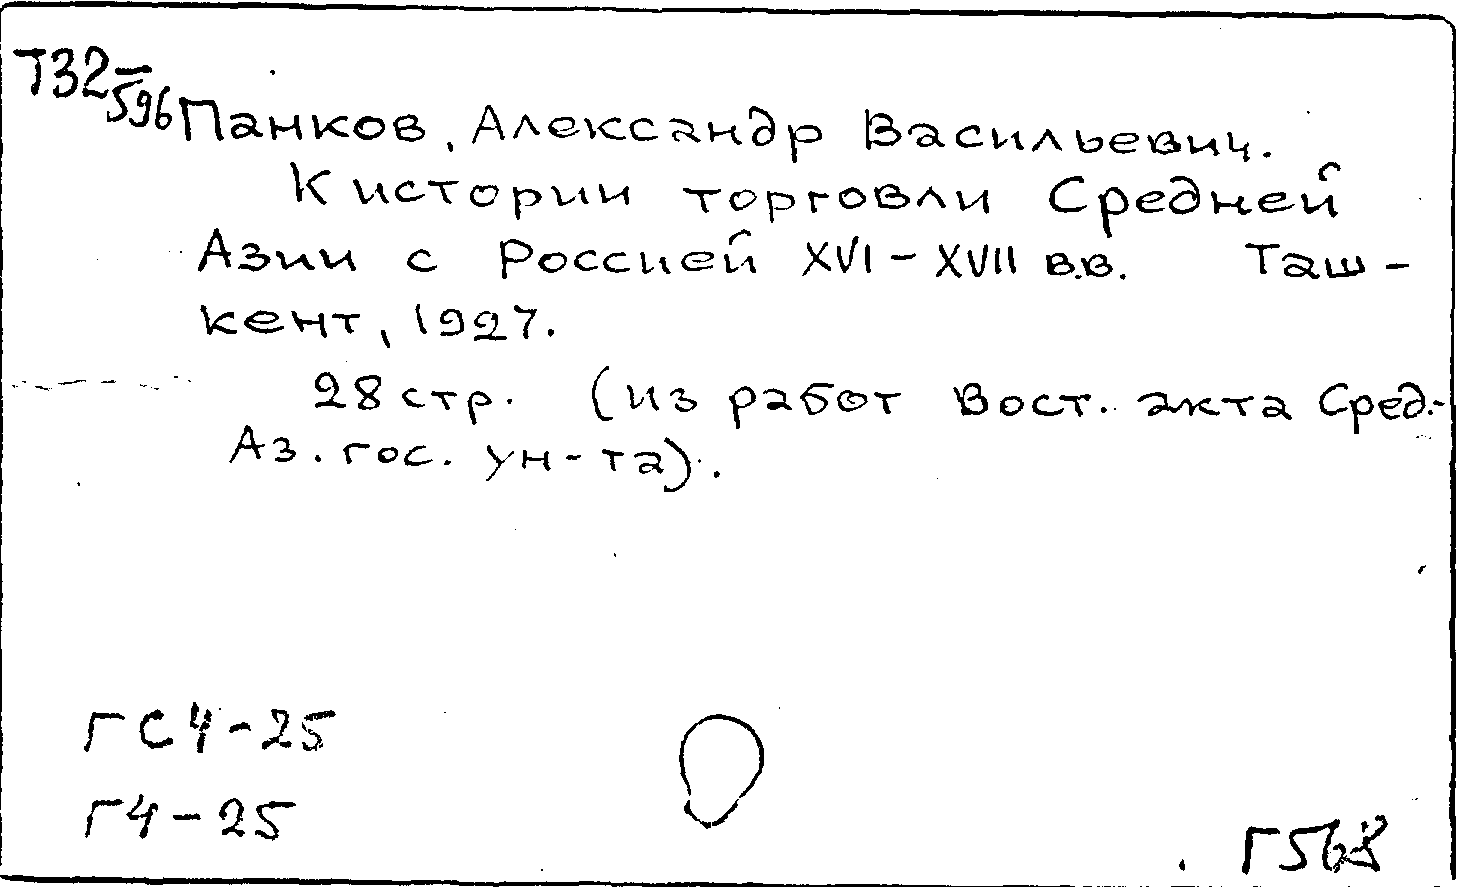 Т32-
596
Панков, Александр Васильевич.
К истории торговли Средней
Азии с Россией XVI-XVII в.в. Таш-
кент, 1927.
28 стр. (из работ Вост. акта Сред.-
Аз. гос. ун-та).
ГС4-25
Г4-25
Г568